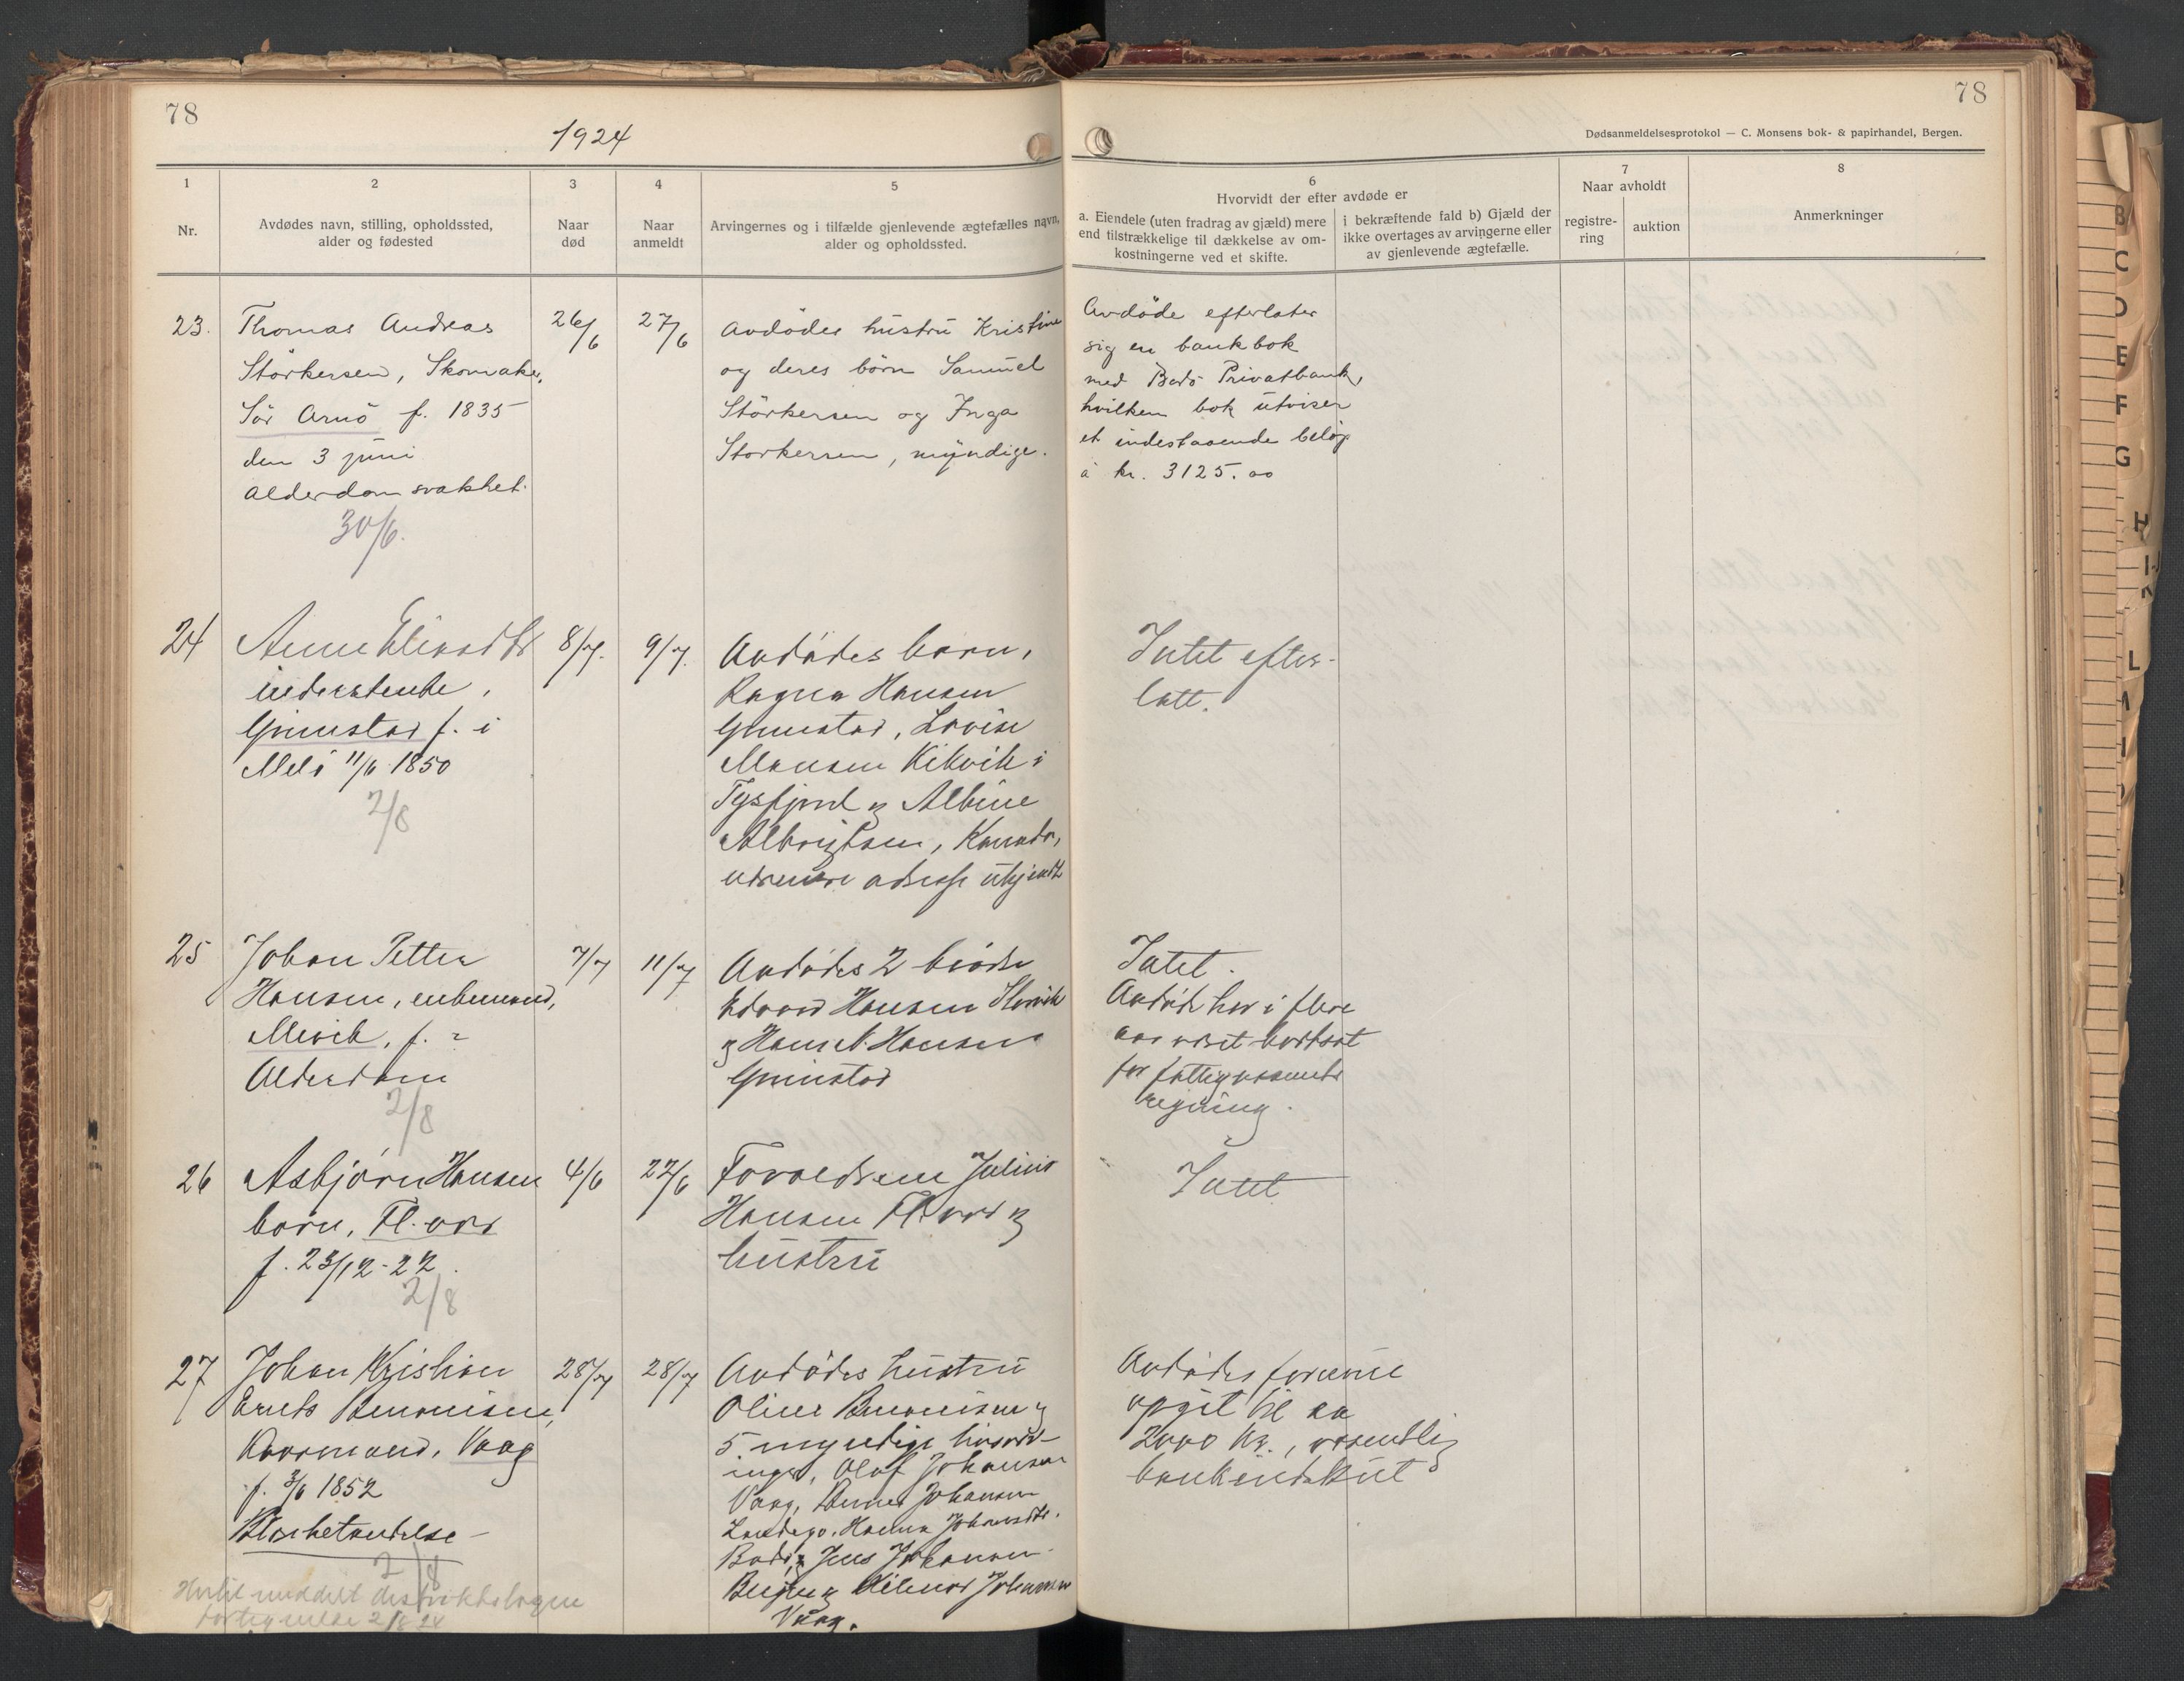 78
1924
78
Dødsanmeldelsesprotokol — C. Monsens bok- & papirhandel, Bergen.
1
Nr.
2
Avdødes navn, stilling, opholdssted,
alder og fødested
3
Naar
død
4
Naar
anmeldt
5
Arvingernes og i tilfælde gjenlevende ægtefælles navn,
alder og opholdssted.
6
Hvorvidt der efter avdøde er
a. Eiendele (uten fradrag av gjæld) mere
end tilstrækkelige til dækkelse av om-
kostningerne ved et skifte.
i bekræftende fald b) Gjæld der
ikke overtages av arvingerne eller
av gjenlevende ægtefælle.
7
Naar avholdt
registre-
ring
auktion
8
Anmerkninger
23.
Thomas Andreas
Störkersen, Skomaker,
Sör Arnö f. 1835
den 3 juni
Alderdomsvakhet.
30/6.
26/6
27/6
Avdödes hustru Kristine
og deres börn Samuel
Störkersen og Inga
Störkersen, myndige.
Avdöde efterlater
sig en bankbok
med Bodö Privatbank,
hvilken bok utviser
et indestaaende belöp
à kr. 3125.00
24
understøttede,
Grimstad f. i
11/6 1850
2/8
8/7.
9/7.
Avdödes barn,
Ragna Hansen
Grimstad, Lovise
Monsen Kikvik i
Tysfjord og Albine
Albrigtsen, Kanada,
nærmere adresse ukjendt
Intet efter-
latt.
25
Johan Petter
Hansen, enkemand,
f. ?
Alderdom
2/8
7/7
11/7
Avdödes 2 brödre
Edvard Hansen
og Hans Hansen
Grimstad
Intet.
Avdöde har i flere
aar været bortsat
for fattigvæsenets
regning.
26
Asbjörn Hansen
barn, Fl. vær
f. 23/12-22.
2/8
4/6
22/6
Forældrene Julius
Hansen Fl. vær og
hustru
Intet
27
Johan Kristian
Benonisen,
Kaarmand, Vaag
f. 3/6 1852
2/8
28/7
28/7
Avdödes hustru
Oline Benonisen og
5 myndige livsarv-
inger, Olaf Johansen
Vaag, Johansen
Landego, Hanna Johansdtr.
Bodö, Jens Johansen
og Hilmar Johansen
Vaag.
Avdödes formue
opgit til ca
2000 kr., væsentlig
bankindskut
Hertil meddelt distriktslægen
fortegnelse 2/8 24